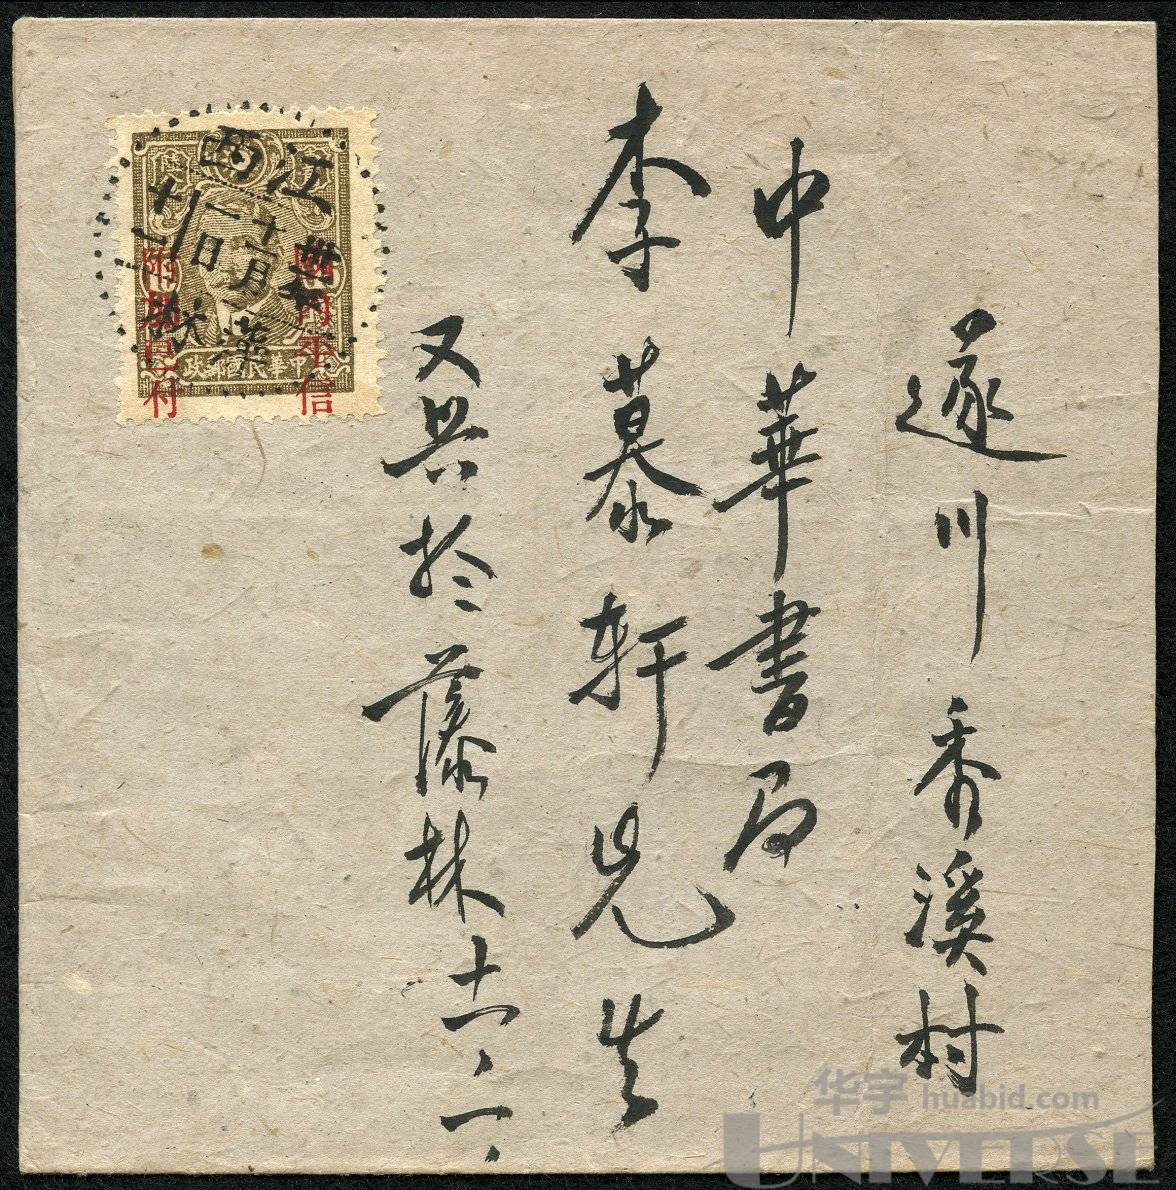 遂川秀溪村
中華書局
李慕軒先生
又具於藤林十一、一、
江西
卅
十一月
一日
國內平信
附加已付
政郵國民華中
华宇 huabid.com
UNIVERSE